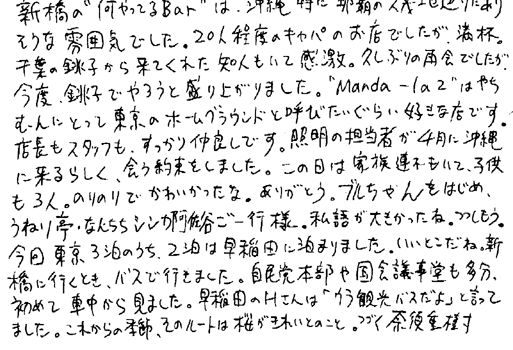 新橋の"何やってるBar"は、沖縄 特に 那覇の
そうな 雰囲気でした。20人程度のキャパのお店でしたが、満杯。
千葉の銚子から来てくれた知人もいて感激。久しぶりの再会でしたが、
今度、銚子でやろうと盛り上がりました。"Manda-la2"はやち
むんにとって東京のホームグラウンドと呼びたいぐらい好きな店です。
店長もスタッフも、すっかり仲良しです。照明の担当者が4月に沖縄
に来るらしく、会う約束をしました。この日は家族連れもいて、子供
も3人。のりのりでかわいかったな。ありがとう。ブルちゃんをはじめ、
うねり亭・なんちらシンカ阿佐谷ご一行様。私語が大きかったね。つつしもう。
今回東京3泊のうち、2泊は早稲田に泊まりました。いいとこだね。新
橋に行くとき、バスで行きました。自民党本部や国会議事堂も多分、
初めて車中から見ました。早稲田のHさんは「もう観光バスだよ」と言って
ました。これからの季節、そのルートは桜がきれいとのこと。つづく 奈須重樹